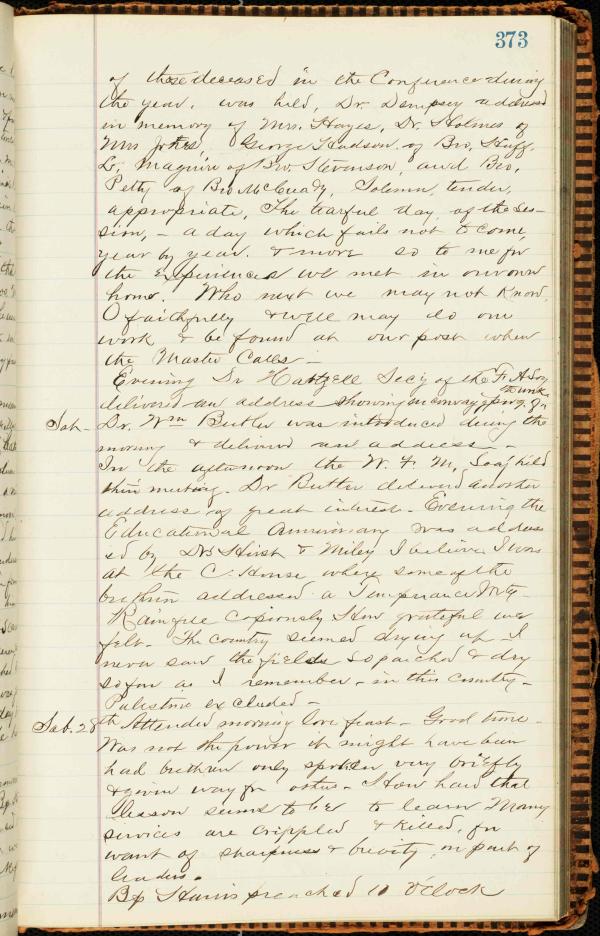 373
of those deceased in the Conference during
the year, was held, Dr. Dempsey address
in memory of Mrs. Hayes, Dr. Holmes of
Mrs George Hudson, of Bro, Huff,
L, Maguire of Bro. Stevenson, and Bro,
Petty of Bro McCready, Solemn, tender,
appropriate, The tearful day, of the Ses-
sion, - a day which fails not to come,
year by year. & more so to me for
the experiences we met in our own
home. Who next we may not know,
O faithfully & well may do our
work & be found at our post when
the Master Calls -
Evening Dr Hartzell Sec'y of the F. A. Soy
delivered an address showing
Sat - Dr. Wm Butler was introduced during the
morning & delivered an address -
In the afternoon the W. F. M, Soc'y held
their meeting. Dr Butler delivered another
address of great interest. Evening the
Educational Anniversary was address
ed by Drs Hirst & Miley I believe. I was
at the C. House where some of the
brethren addressed a Temperance Mtg -
Rain fell copiously. How grateful we
felt. The country seemed drying up - I
never saw the fields so parched & dry
so far as I remember - in this country -
Palestine excluded -
Sab. 28th Attended morning love feast - Good time -
Was not the power it might have been
had brethren only spoken very briefly
& given way for others - How hard that
lesson seems to be to learn Many
services are crippled & killed, for
want of sharpness & brevity, on part of
leaders.
Bp Harris preached 10 O'Clock